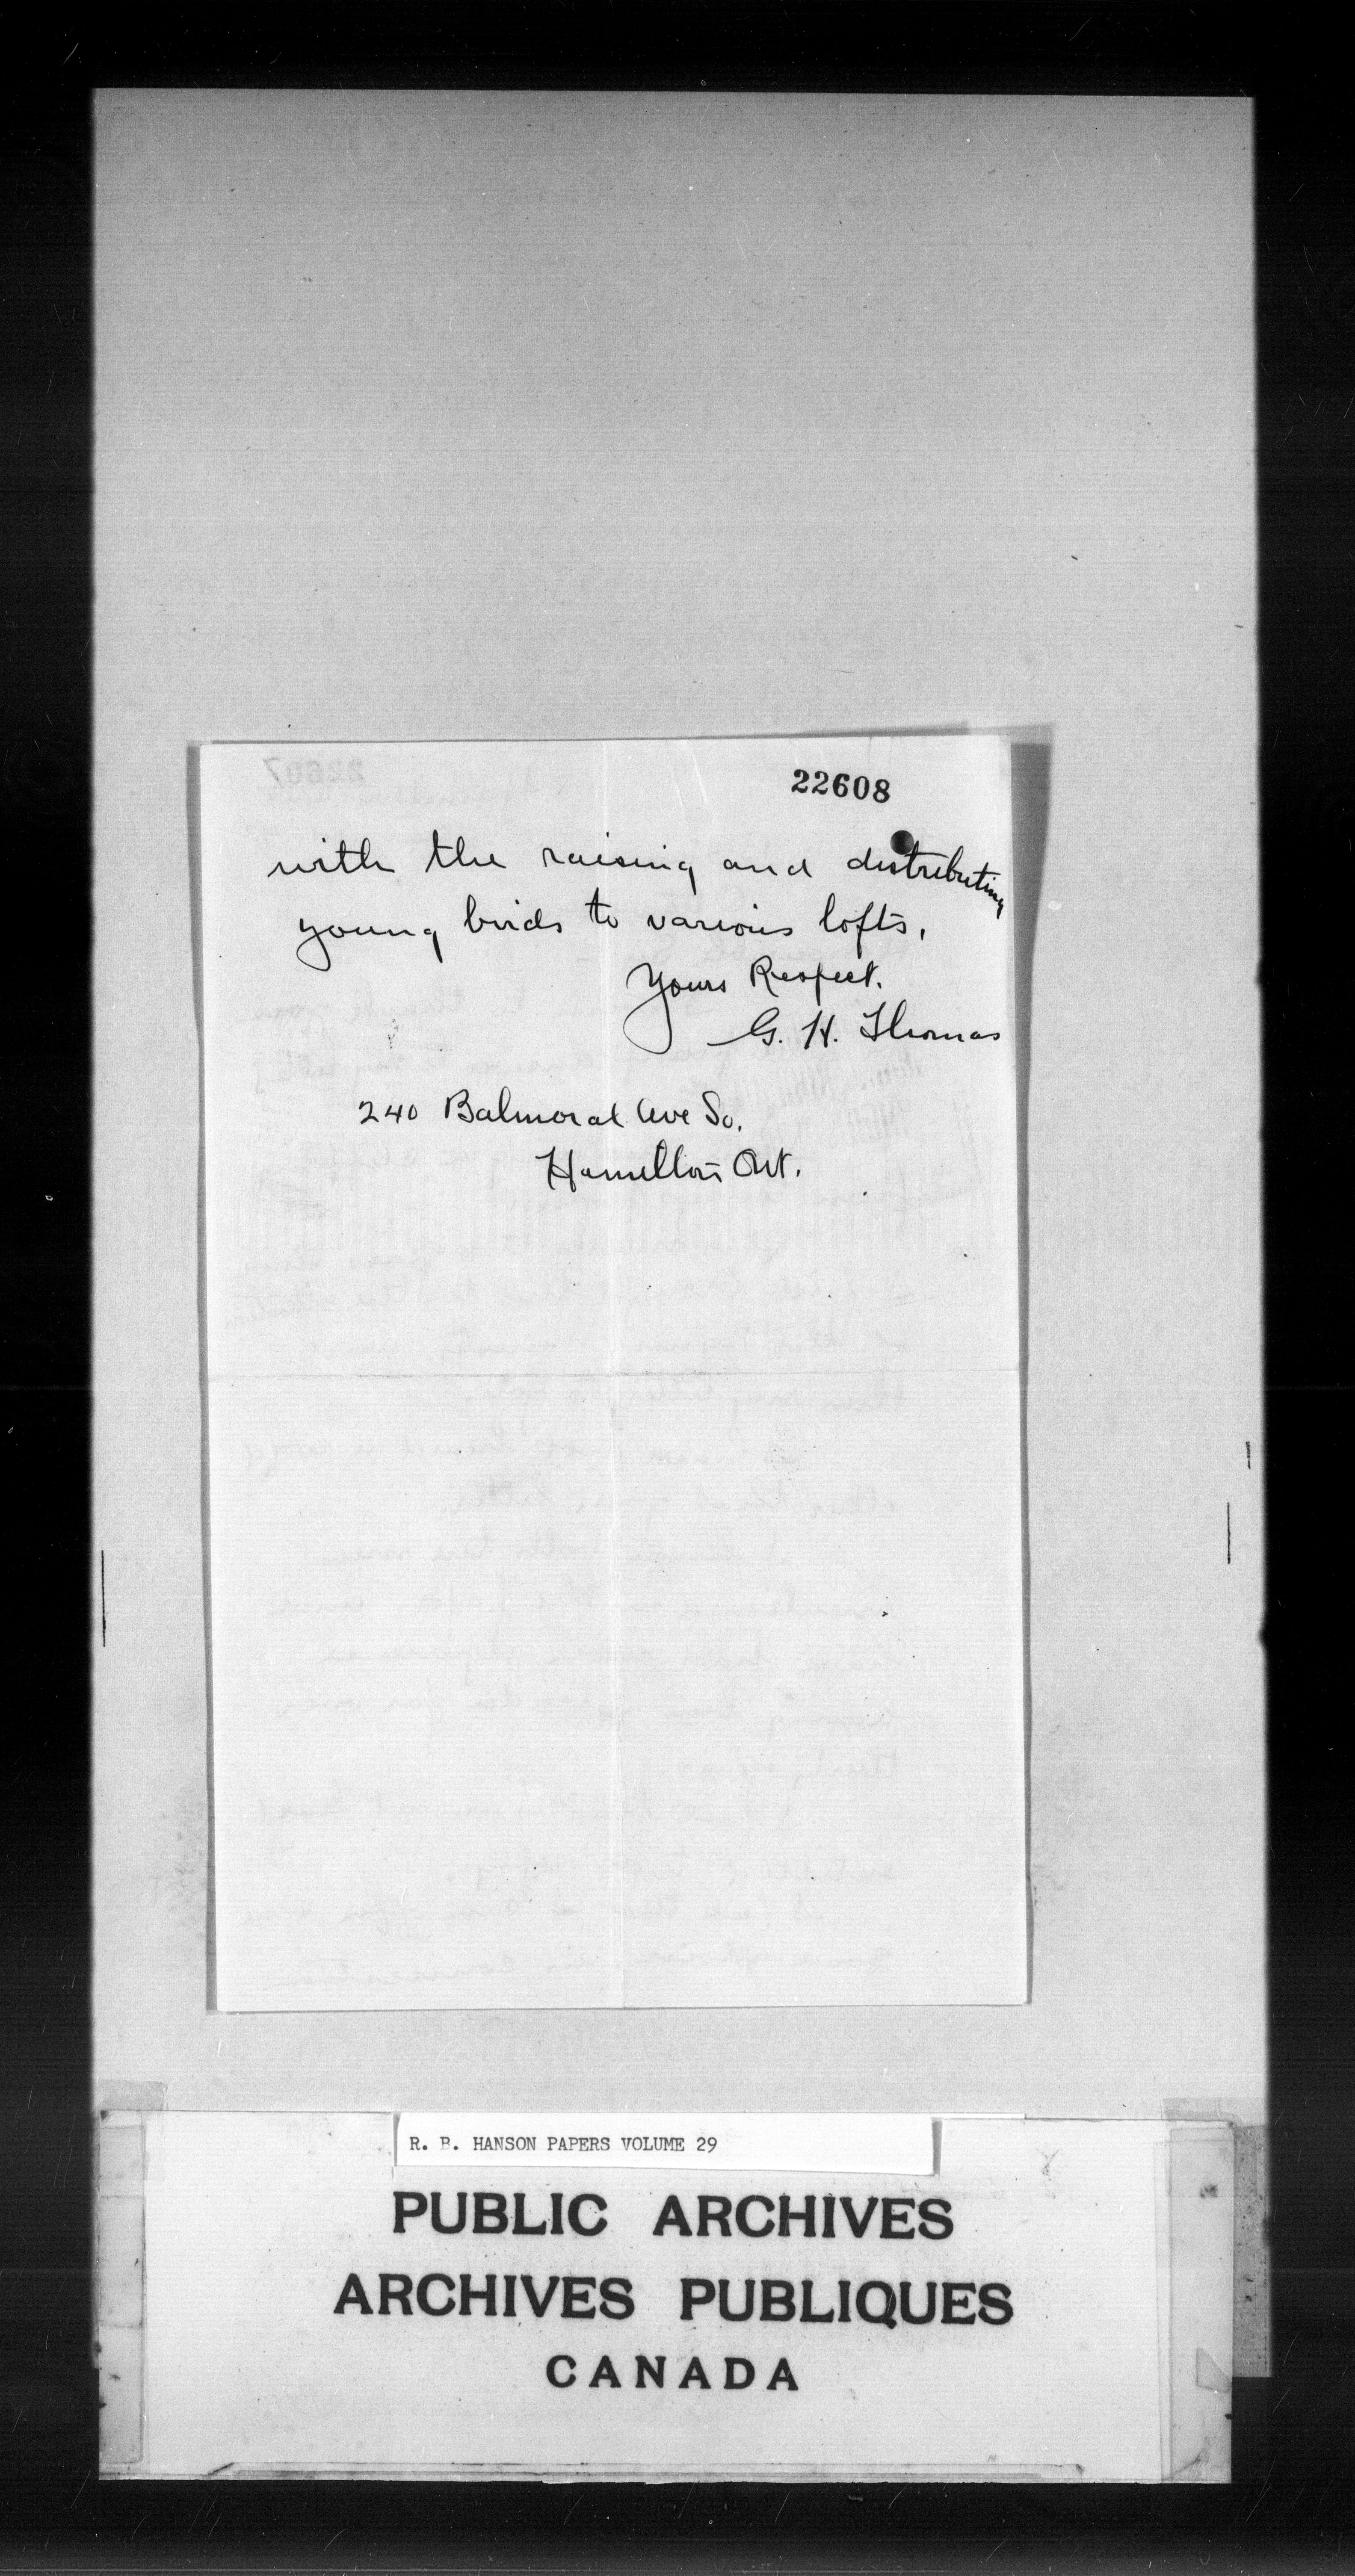 22608
with the raising and distributing
young birds to various lofts,
Yours Respect.
G. H. Thomas
240 Balmoral Ave So.
Hamilton Ont.
R. B. HANSON PAPERS VOLUME 29
PUBLIC ARCHIVES
ARCHIVES PUBLIQUES
CANADA